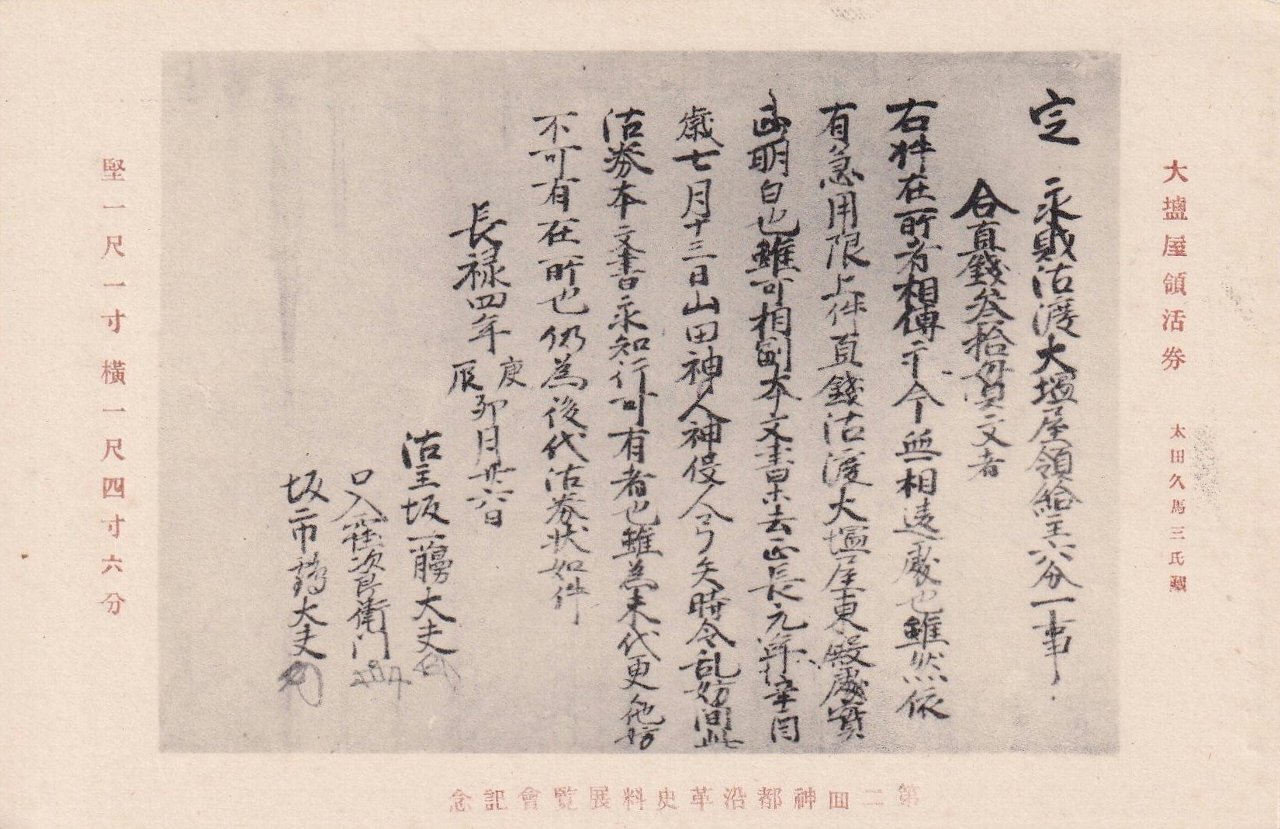 大塩屋領活券 太田久馬三氏蔵
定 永財沽渡大塩屋領給主六分一事
合直銭参拾貫文者
右件在所者相傳于今無相違處也雖然依
有急用限上件直錢沽渡大塩屋東殿處實
正明白也雖可相副本文書等去正長元年
歳七月十三日山田神人神役人弓矢時令乱妨間此
沽券本文書永知行可有者也雖為末代更他妨
不可有在所也仍為後代沽券状如件
長禄四年庚辰卯月廿六日
沽主坂一﨟大夫
口入窪次郎衛門
坂二市鶴大夫
堅一尺一寸橫一尺四寸六分
第二回神都沿革史料展覧會記念